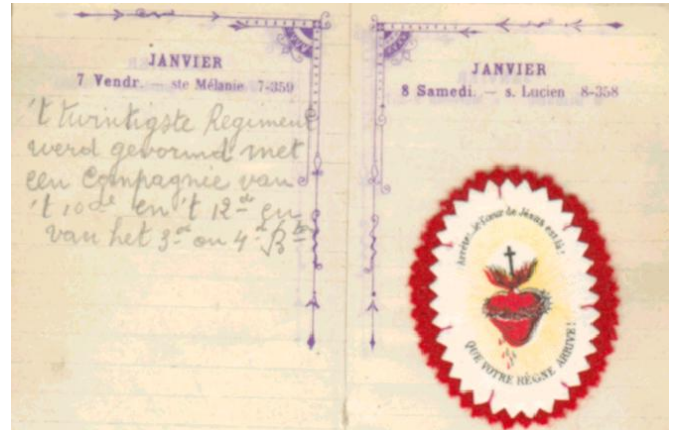 JANVIER
7 Vendr. — ste Mélanie 7-359
't Twintigste Regiment
werd gevormd met
een Compagnie van
't 10de en 't 12de en
van het 3de ou 4de Bon
JANVIER
8 Samedi. — s. Lucien 8-358
Arrête, le Cœur de Jésus est là!
QUE VOTRE RÈGNE ARRIVE!